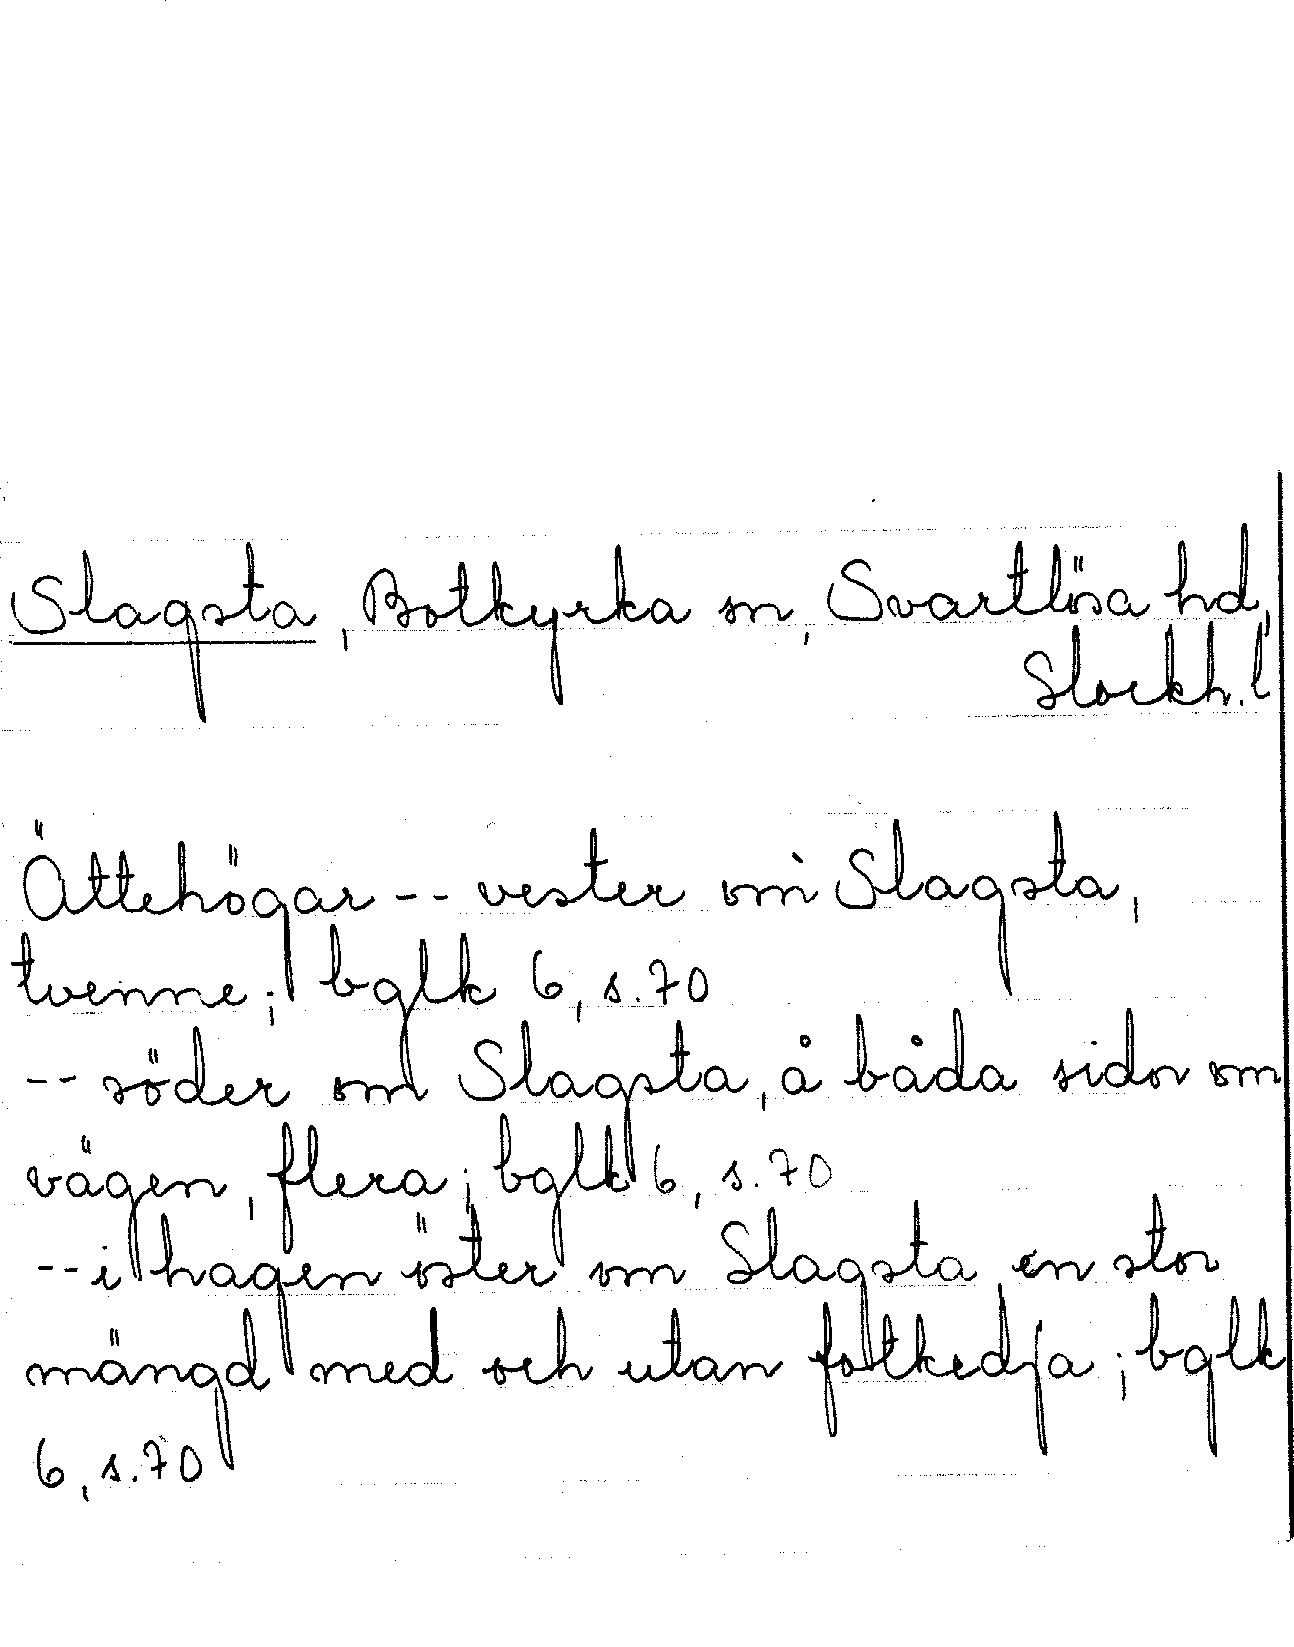 Slagsta, Botkyrka sn, Svartlösa hd,
Stockh. l
Ättehögar -- vester om Slagsta,
tvenne; bglk 6, s. 70
-- söder om Slagsta, å båda sidor om
vägen, flera; bglk 6, s. 70
-- i hagen öster om Slagsta en stor
mängd med och utan fotkedja; bglk
6, s. 70